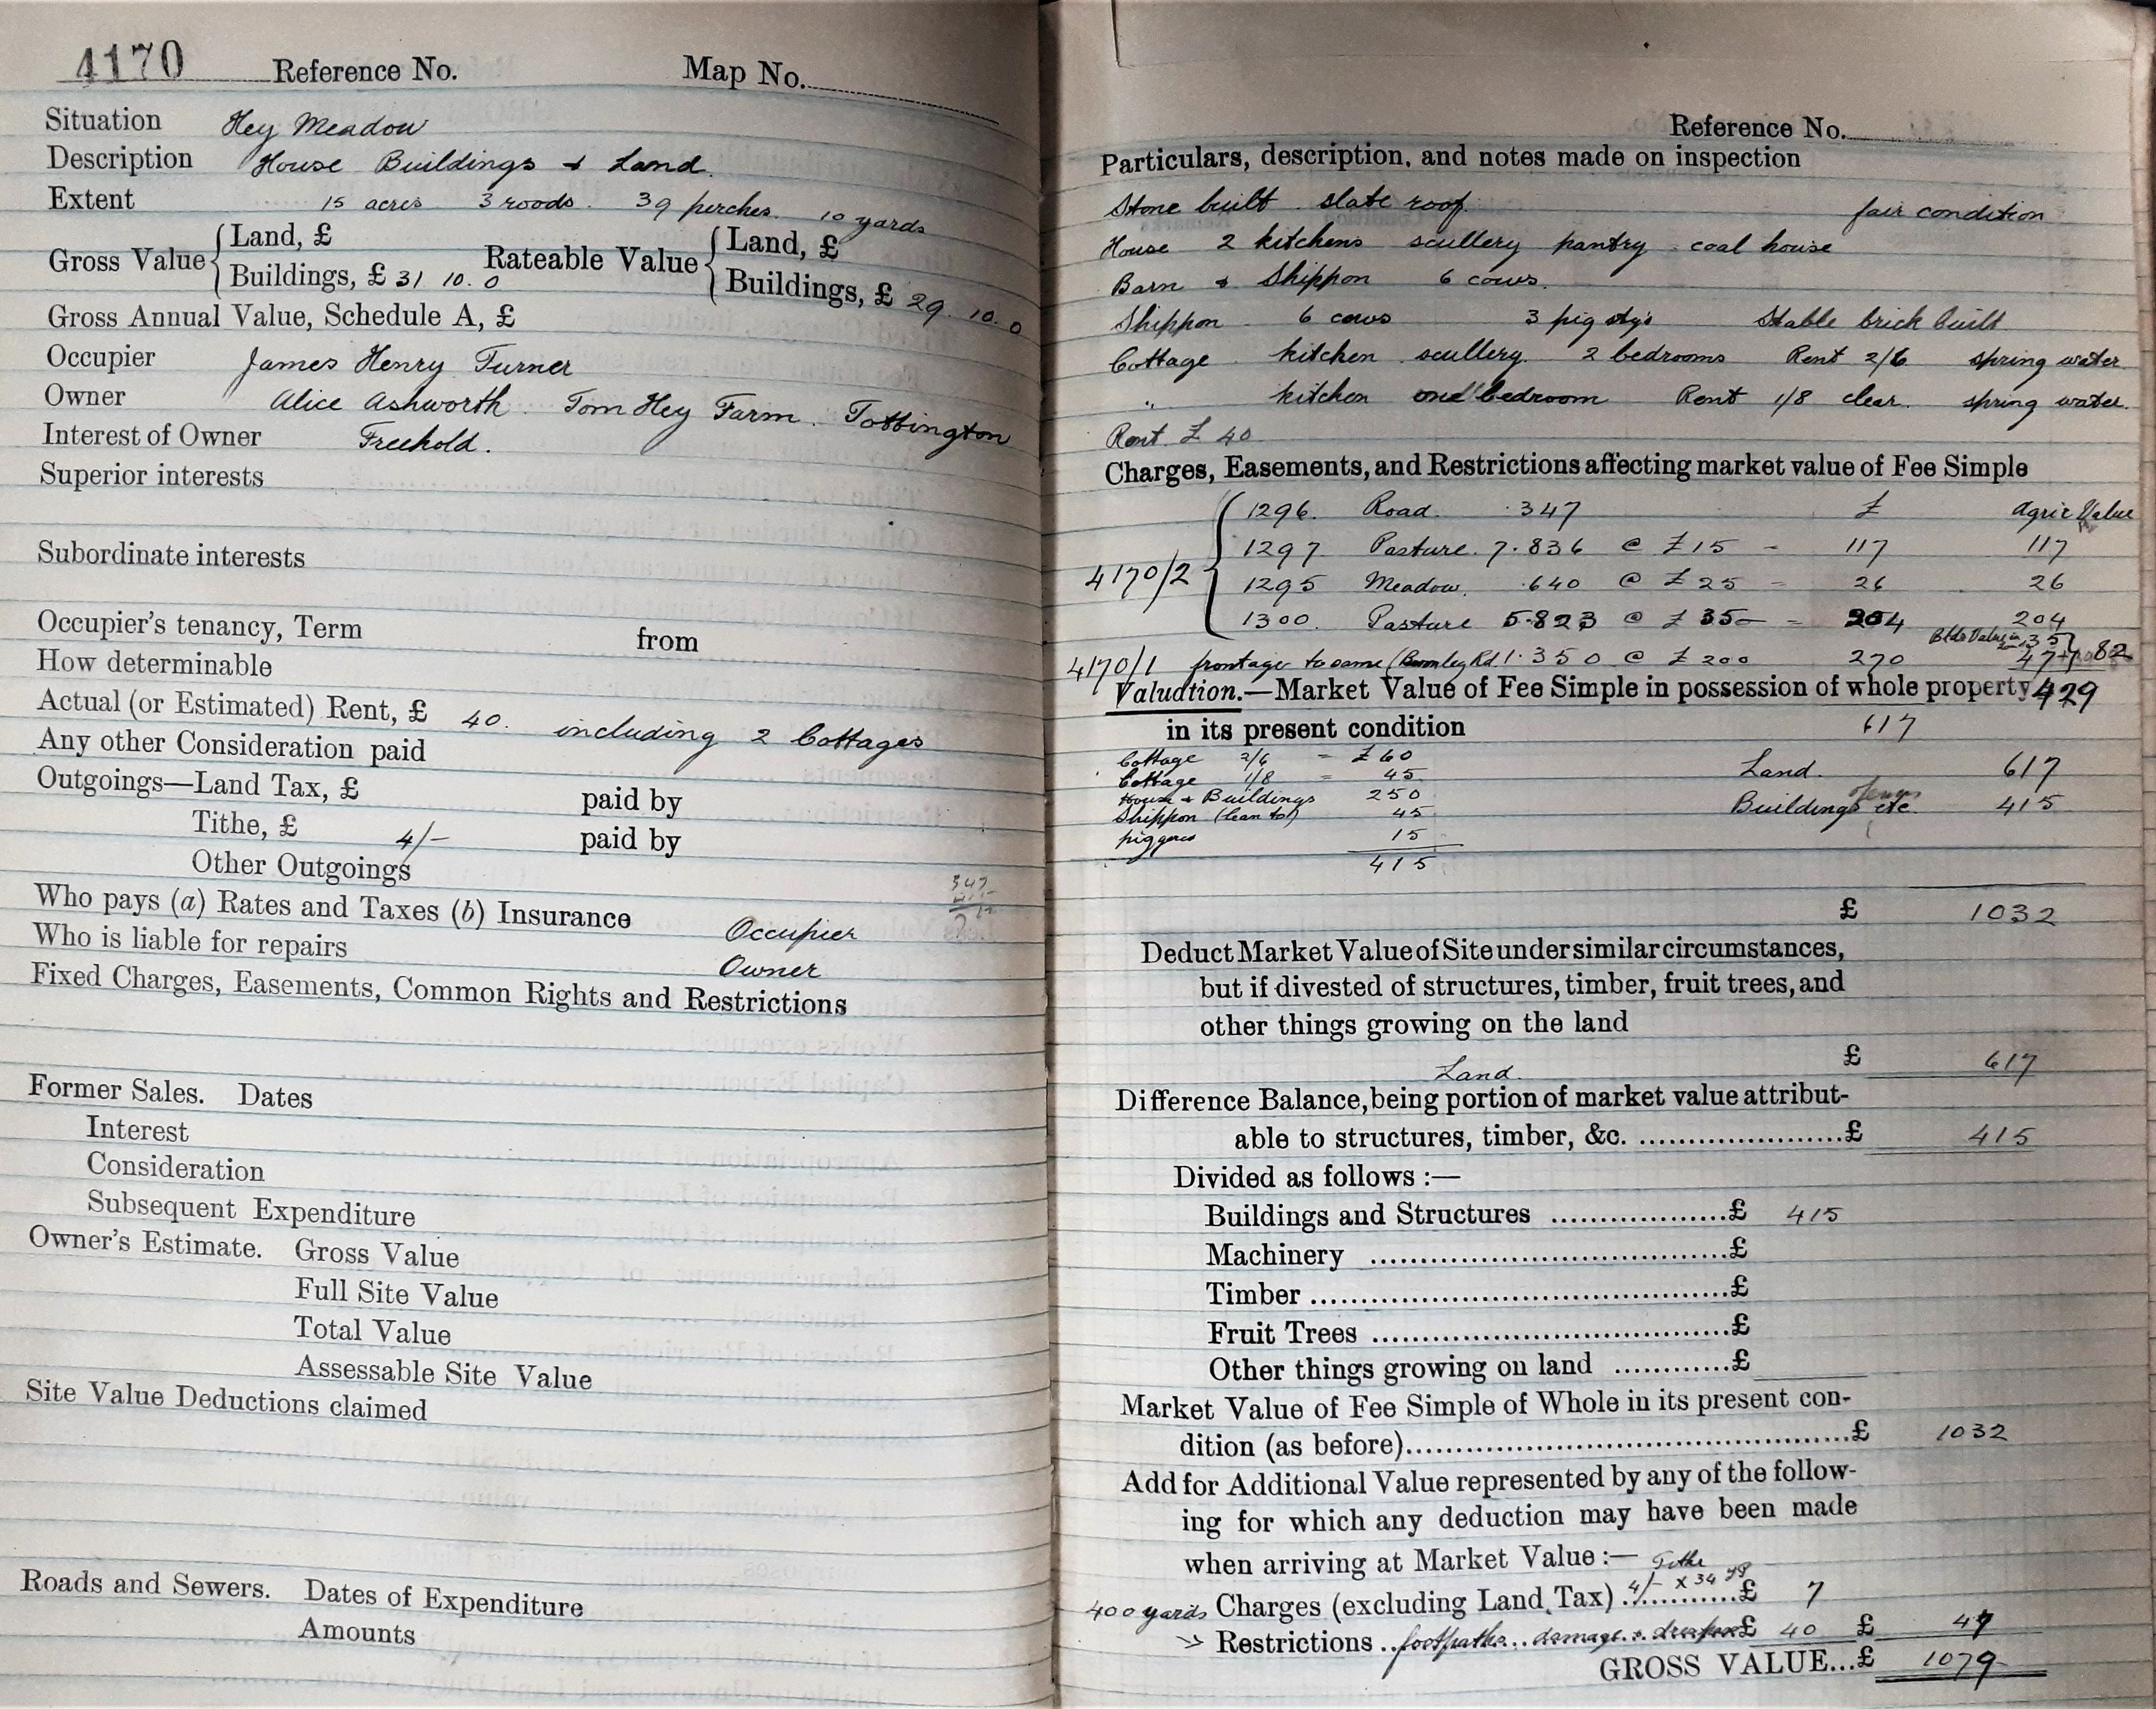 4170 Reference No. Map No.
Situation Hey Meadow
Description House Buildings & Land.
Extent 15 acres 3 roods. 39 perches. 10 yards
Gross Value { Land, £ Rateable Value { Land, £
Buildings, £ 31 10. 0 Buildings, £ 29. 10. 0
Gross Annual Value, Schedule A, £
Occupier James Henry Turner
Owner Alice Ashworth. Tom Hey Farm. Tottington
Interest of Owner Freehold.
Superior interests
Subordinate interests
Occupier's tenancy, Term from
How determinable
Actual (or Estimated) Rent, £ 40. including 2 Cottages
Any other Consideration paid
Outgoings—Land Tax, £ paid by
Tithe, £ 4/- paid by
Other Outgoings
347
Who pays (a) Rates and Taxes (b) Insurance Occupier
Who is liable for repairs Owner
Fixed Charges, Easements, Common Rights and Restrictions
Former Sales. Dates
Interest
Consideration
Subsequent Expenditure
Owner's Estimate. Gross Value
Full Site Value
Total Value
Assessable Site Value
Site Value Deductions claimed
Roads and Sewers. Dates of Expenditure
Amounts
Reference No.
Particulars, description, and notes made on inspection
Stone built slate roof. fair condition
House 2 kitchens scullery pantry coal house
Barn & Shippon 6 cows.
Shippon 6 cows 3 pig sty's Stable brick built
Cottage kitchen scullery. 2 bedrooms Rent 2/6 spring water
" kitchen one bedroom Rent 1/8 clear. spring water.
Rent £ 40
Charges, Easements, and Restrictions affecting market value of Fee Simple
1296. Road. .347 £ Agric Value
1297 Pasture. 7.836 @ £15 - 117 117
4170/2 { 1295 Meadow. .640 @ £25 = 26 26
1300. Pasture 5.823 @ £35 - = 204 204
4170/1 frontage to same 1.350 @ £200 270 82
Valuation.—Market Value of Fee Simple in possession of whole property 429
in its present condition 617
Cottage 2/6 = £60
Cottage 1/8 = 45 Land. 617
House & Buildings 250 Buildings etc. 415
Shippon (lean to) 45
piggeries 15
415
£ 1032
Deduct Market Value of Site under similar circumstances,
but if divested of structures, timber, fruit trees, and
other things growing on the land
Land. £ 617
Difference Balance, being portion of market value attribut-
able to structures, timber, &c. £ 415
Divided as follows :—
Buildings and Structures £ 415
Machinery £
Timber £
Fruit Trees £
Other things growing on land £
Market Value of Fee Simple of Whole in its present con-
dition (as before) £ 1032
Add for Additional Value represented by any of the follow-
ing for which any deduction may have been made
when arriving at Market Value :— Tithe
400 yards Charges (excluding Land Tax) 4/- x 34 £ 7
Restrictions footpaths damage £ 40 £ 47
GROSS VALUE...£ 1079